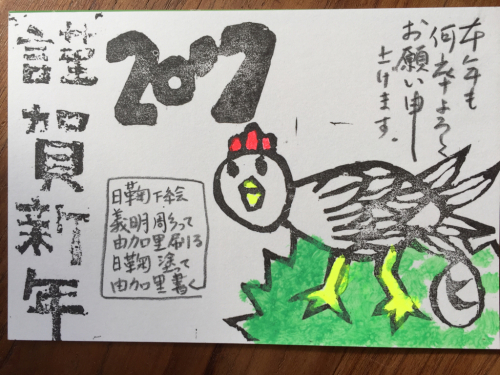 謹賀新年
2017
本年も
何卒よろしく
お願い申し
上げます。
日鞠下絵
義明彫って
由加里刷る
日鞠塗って
由加里書く